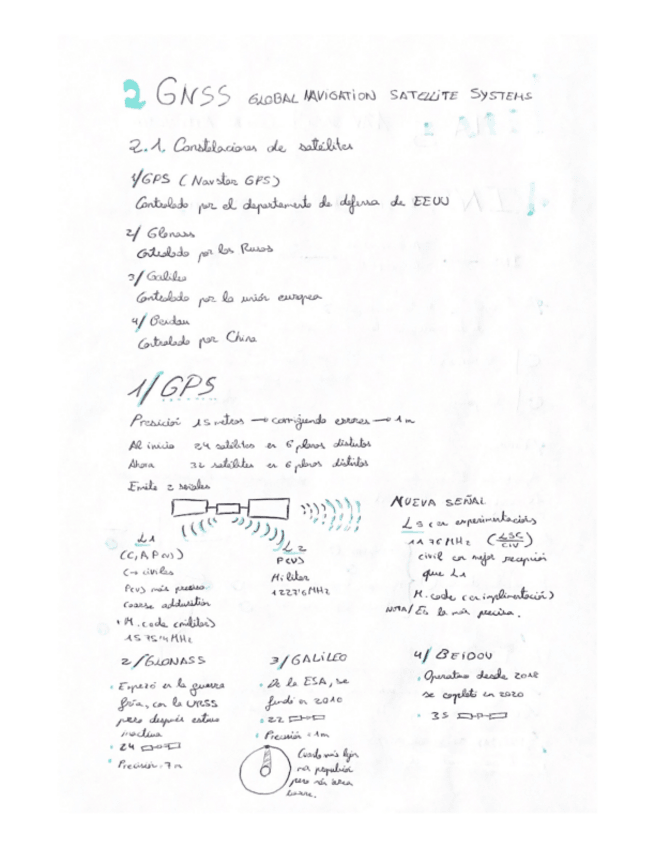 2 GNSS GLOBAL NAVIGATION SATELLITE SYSTEMS
2.1. Constelaciones de satélites
1/GPS (Navstar GPS)
Controlado por el departamento de defensa de EEUU
2/ Glonass
Controlado por los Rusos
3/ Galileo
Controlado por la unión europea
4/ Beidou
Controlado por China
1/GPS
Presición 15 metros → corrigiendo errores → 1m
Al inicio 24 satélites en 6 planos distintos
Ahora 32 satélites en 6 planos distintos
Emite 2 señales
L1
(C, A P(Y))
C → civiles
P(Y) más preciso
coarse
+ M. code (militar)
1575'4 MHz
L2
P(Y)
Militar
1227'6 MHz
NUEVA SEÑAL
L5 en experimentación
1176 MHz (L5C/CIV)
civil con mejor recepción
que L1
M. code (en implementación)
NOTA/ Es la más precisa.
2/GLONASS
• Empezó en la guerra
fría, con la URSS
pero después estuvo
inactiva
• 24
• Precisión: 7m
3/GALILEO
• De la ESA, se
fundó en 2010
• 22
• Precisión: 1m
Cuanto más lejos
más
pero más area
barre.
4/ BEIDOU
• Operativo desde 2018
se completó en 2020
• 35